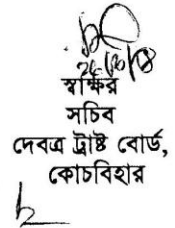 স্বাক্ষর
সচিব
দেবত্র ট্রাষ্ট বোর্ড,
কোচবিহার